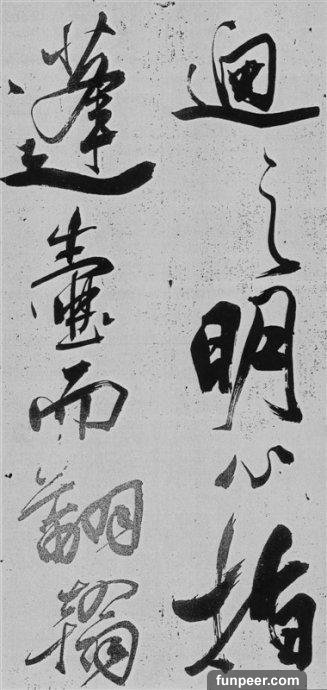 迴之明心指
蓬壺而翻翰
funpeer.com